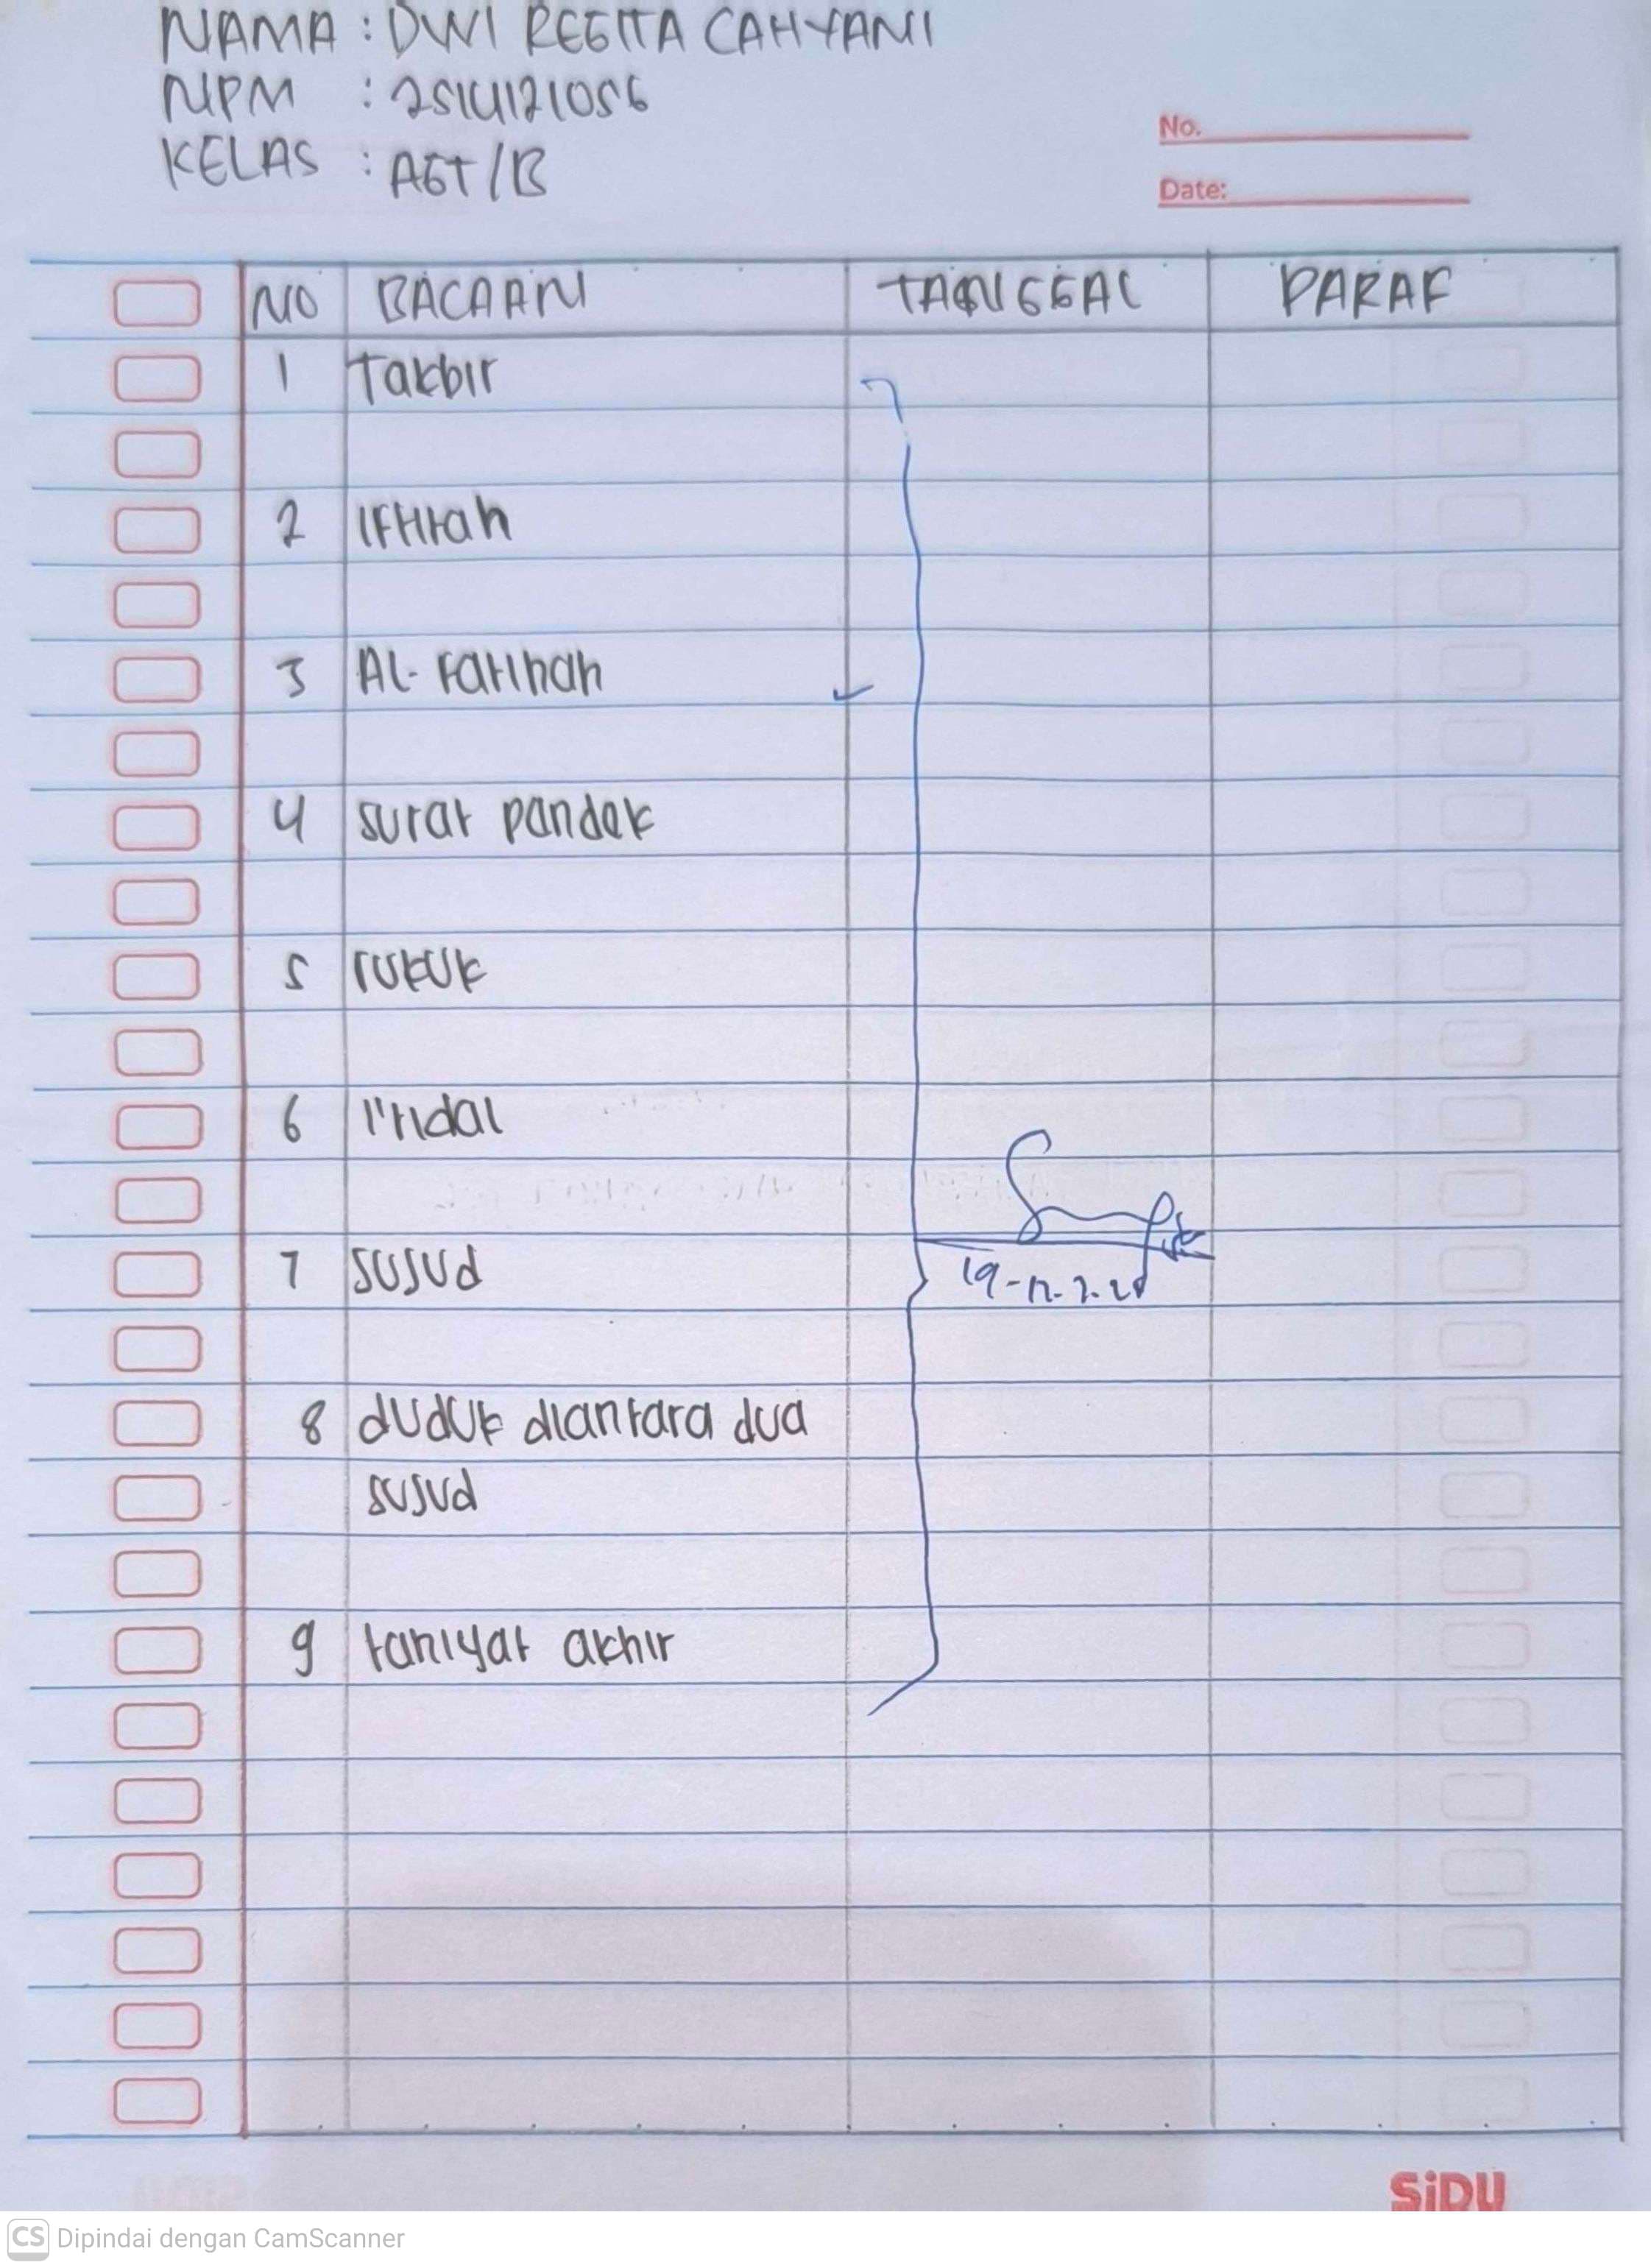 NAMA : DWI REGITA CAHYANI
NPM : 2514121056
KELAS : AGT/B
No.
Date:
NO BACAAN TANGGAL PARAF
1 Takbir
2 Iftitah
3 AL-Fatihah
4 surat pandek
5 rukuk
6 I'tidal
7 sujud
8 duduk diantara dua
sujud
9 tahiyat akhir
SiDU
CS Dipindai dengan CamScanner